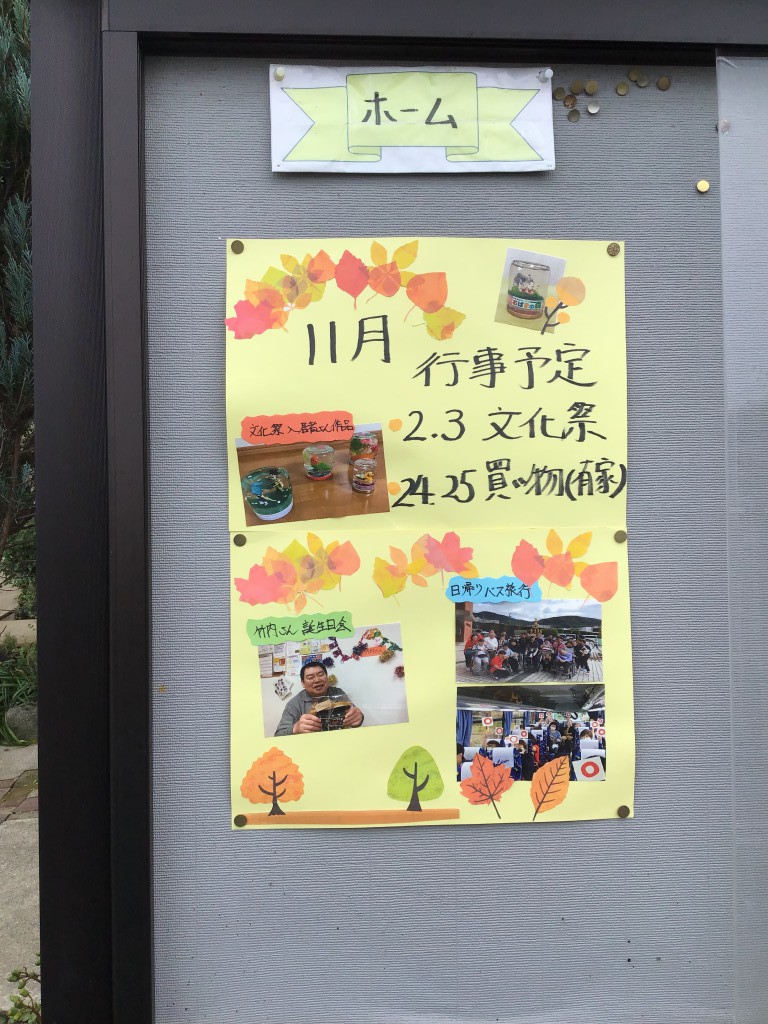 ホーム
11月
行事予定
2.3 文化祭
24.25 買い物(有家)
文化祭入居者さん作品
日帰りバス旅行
竹内さん誕生日会